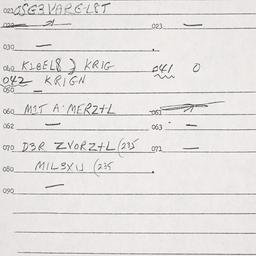 021 OSG3VARG-L8T
020 023 —
030 —
040 KIBEL8 KRIG 041 0
042 KRIGN
050 —
060 MIT A·MERZ+L 061
062 — 063 —
070 D3R ZVORZ+L (235 071 —
080 MIL3XIJ (235
090 —